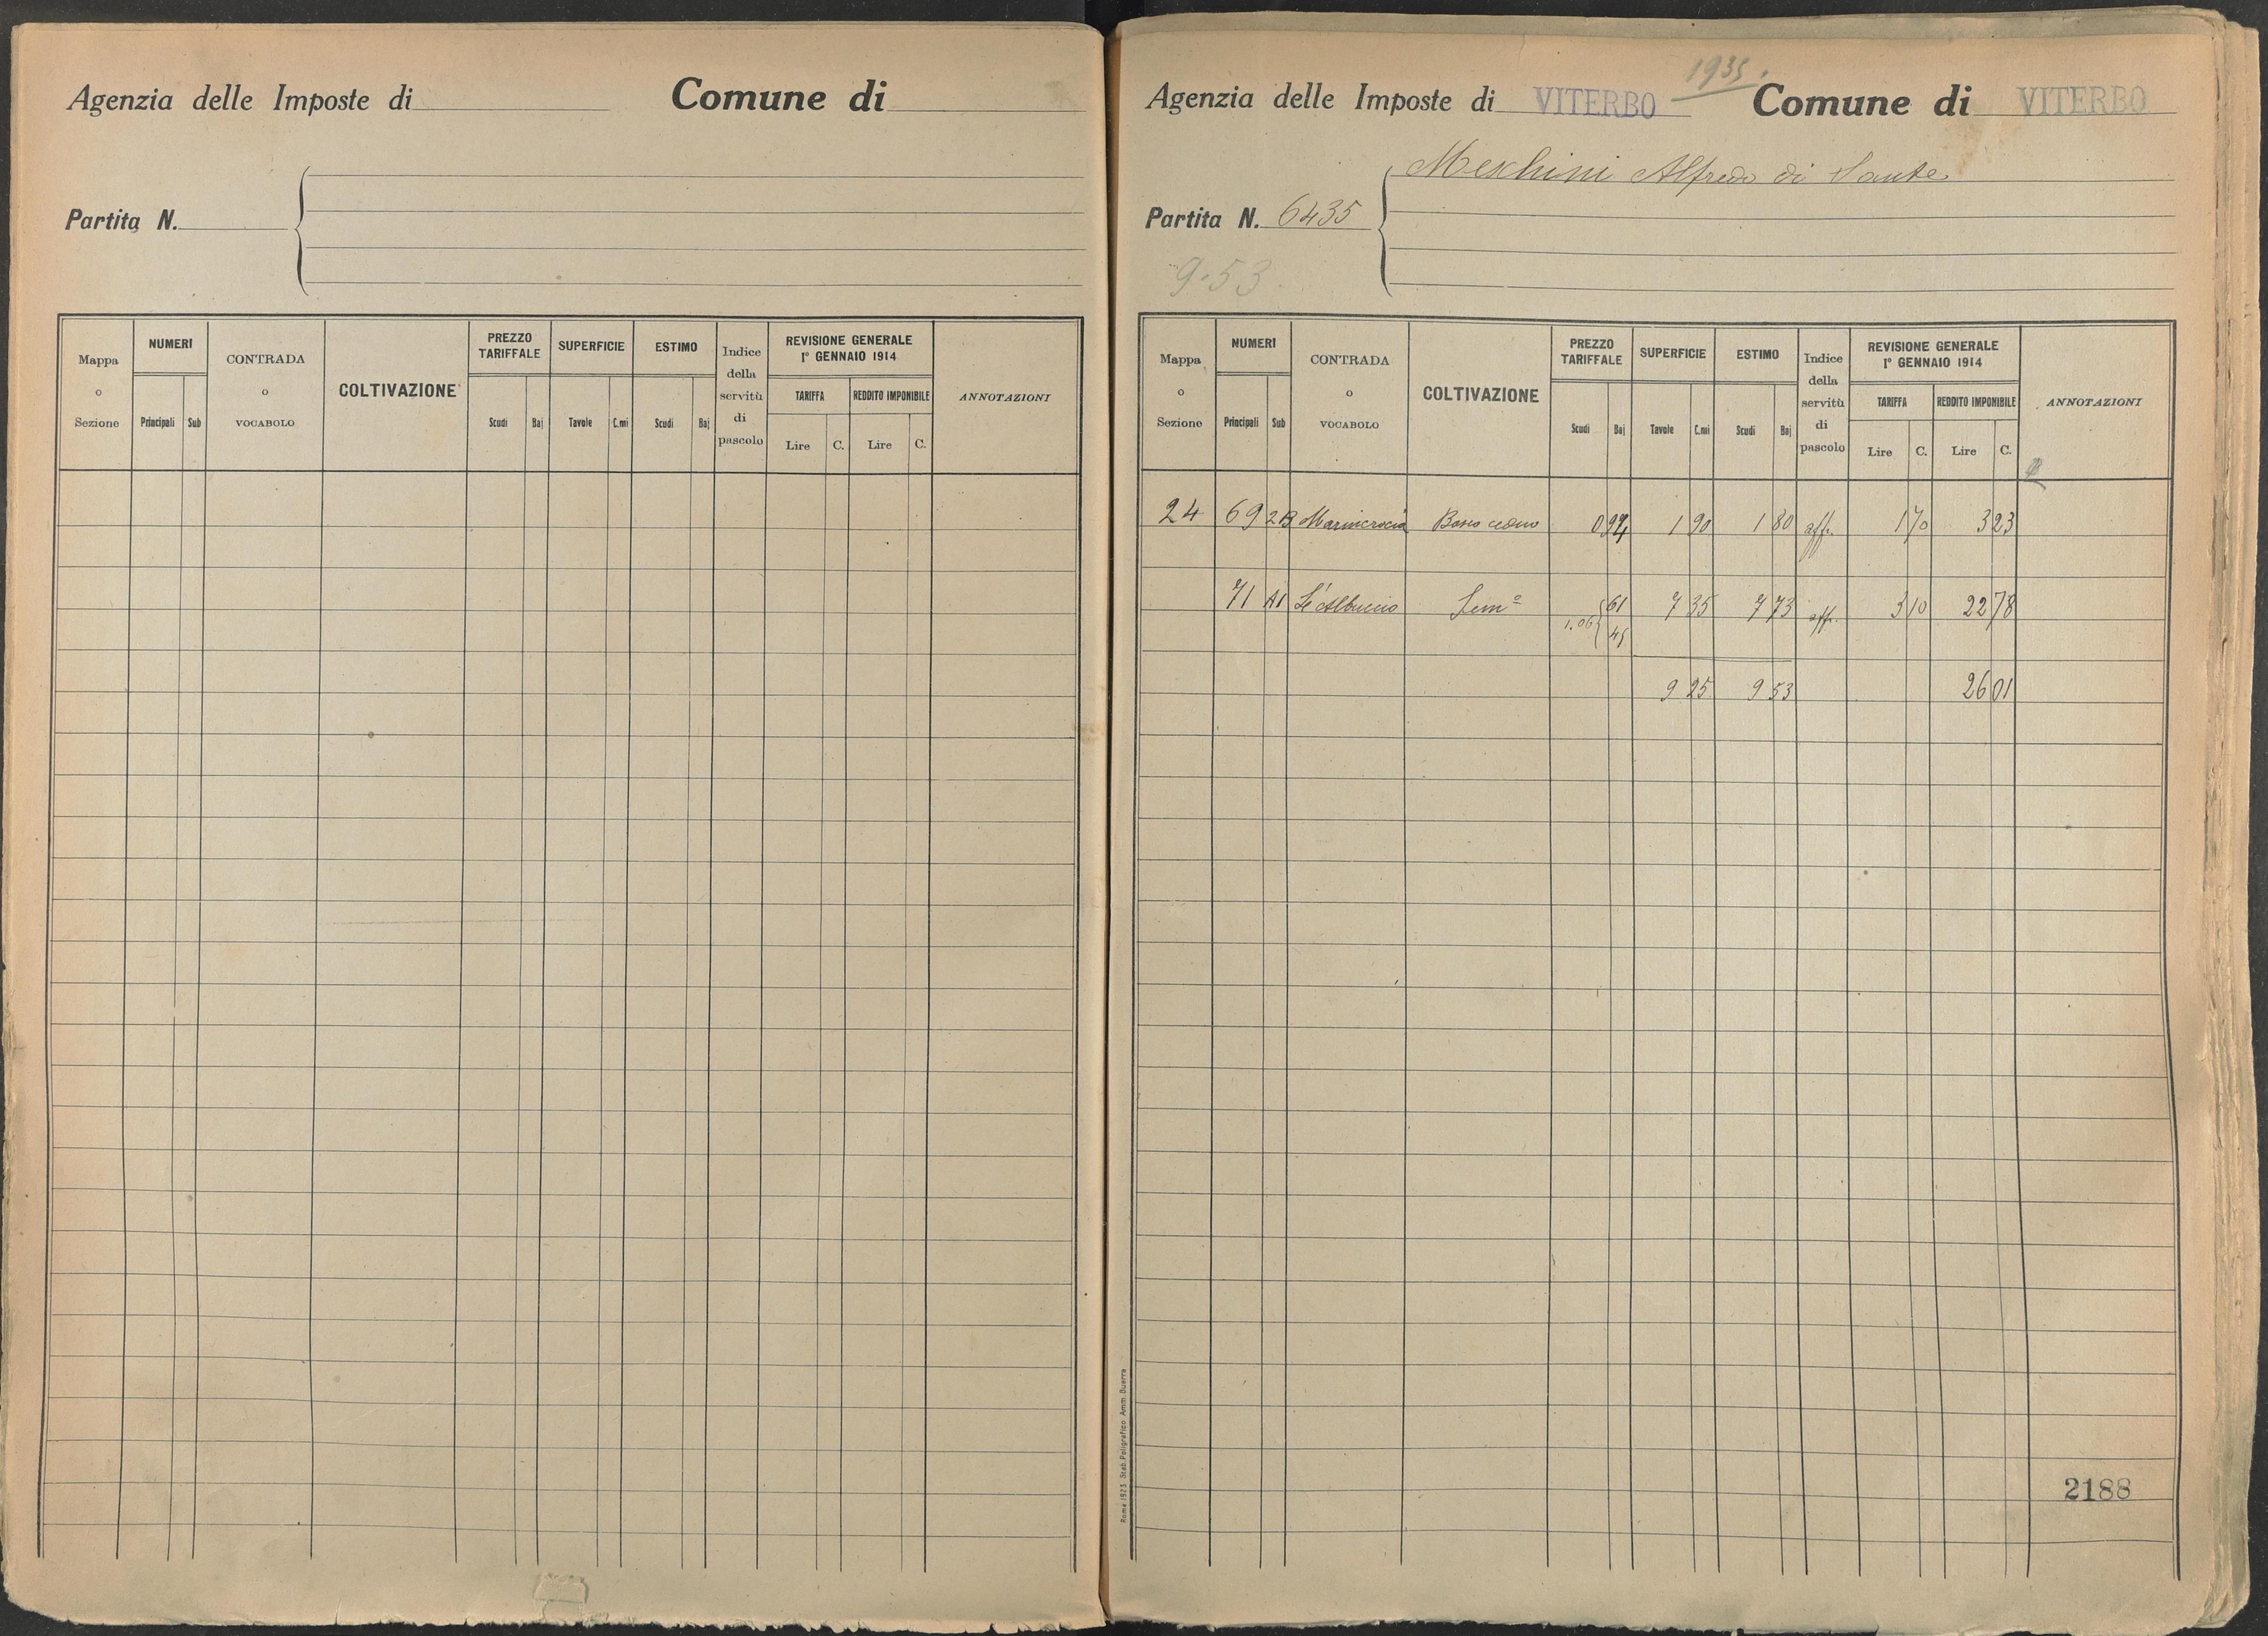 Agenzia delle Imposte di Comune di
Partita N.
Mappa o Sezione
NUMERI
Principali Sub
CONTRADA o VOCABOLO
COLTIVAZIONE
PREZZO TARIFFALE
Scudi Baj
SUPERFICIE
Tavole C.mi
ESTIMO
Scudi Baj
Indice della servitù di pascolo
REVISIONE GENERALE
1° GENNAIO 1914
TARIFFA
Lire C.
REDDITO IMPONIBILE
Lire C.
ANNOTAZIONI
1935.
Agenzia delle Imposte di VITERBO Comune di VITERBO
Meschini Alfredo di Sante
Partita N. 6435
9.53
Mappa o Sezione
NUMERI
Principali Sub
CONTRADA o VOCABOLO
COLTIVAZIONE
PREZZO TARIFFALE
Scudi Baj
SUPERFICIE
Tavole C.mi
ESTIMO
Scudi Baj
Indice della servitù di pascolo
REVISIONE GENERALE
1° GENNAIO 1914
TARIFFA
Lire C.
REDDITO IMPONIBILE
Lire C.
ANNOTAZIONI
24 69 2B Marincrocia Bosco ceduo 0 94 1 90 1 80 aff. 1 70 3 23
71 A1 Sem.e 1.06 { 61 45 7 35 7 73 aff. 3 10 22 78
9 25 9 53 26 01
2188
Roma 1923 Stab. Poligrafico Amm. Guerra